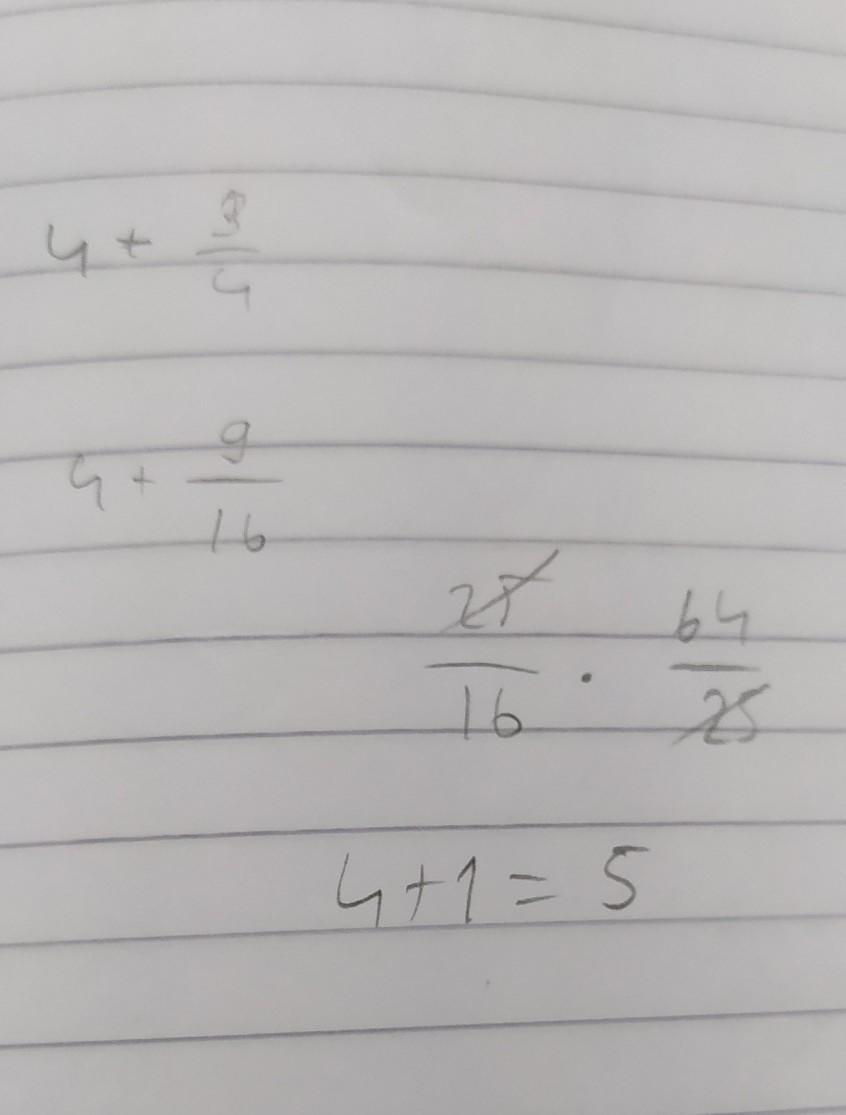 4 + 3/4
4 + 9/16
25/16 · 64/25
4+1 = 5